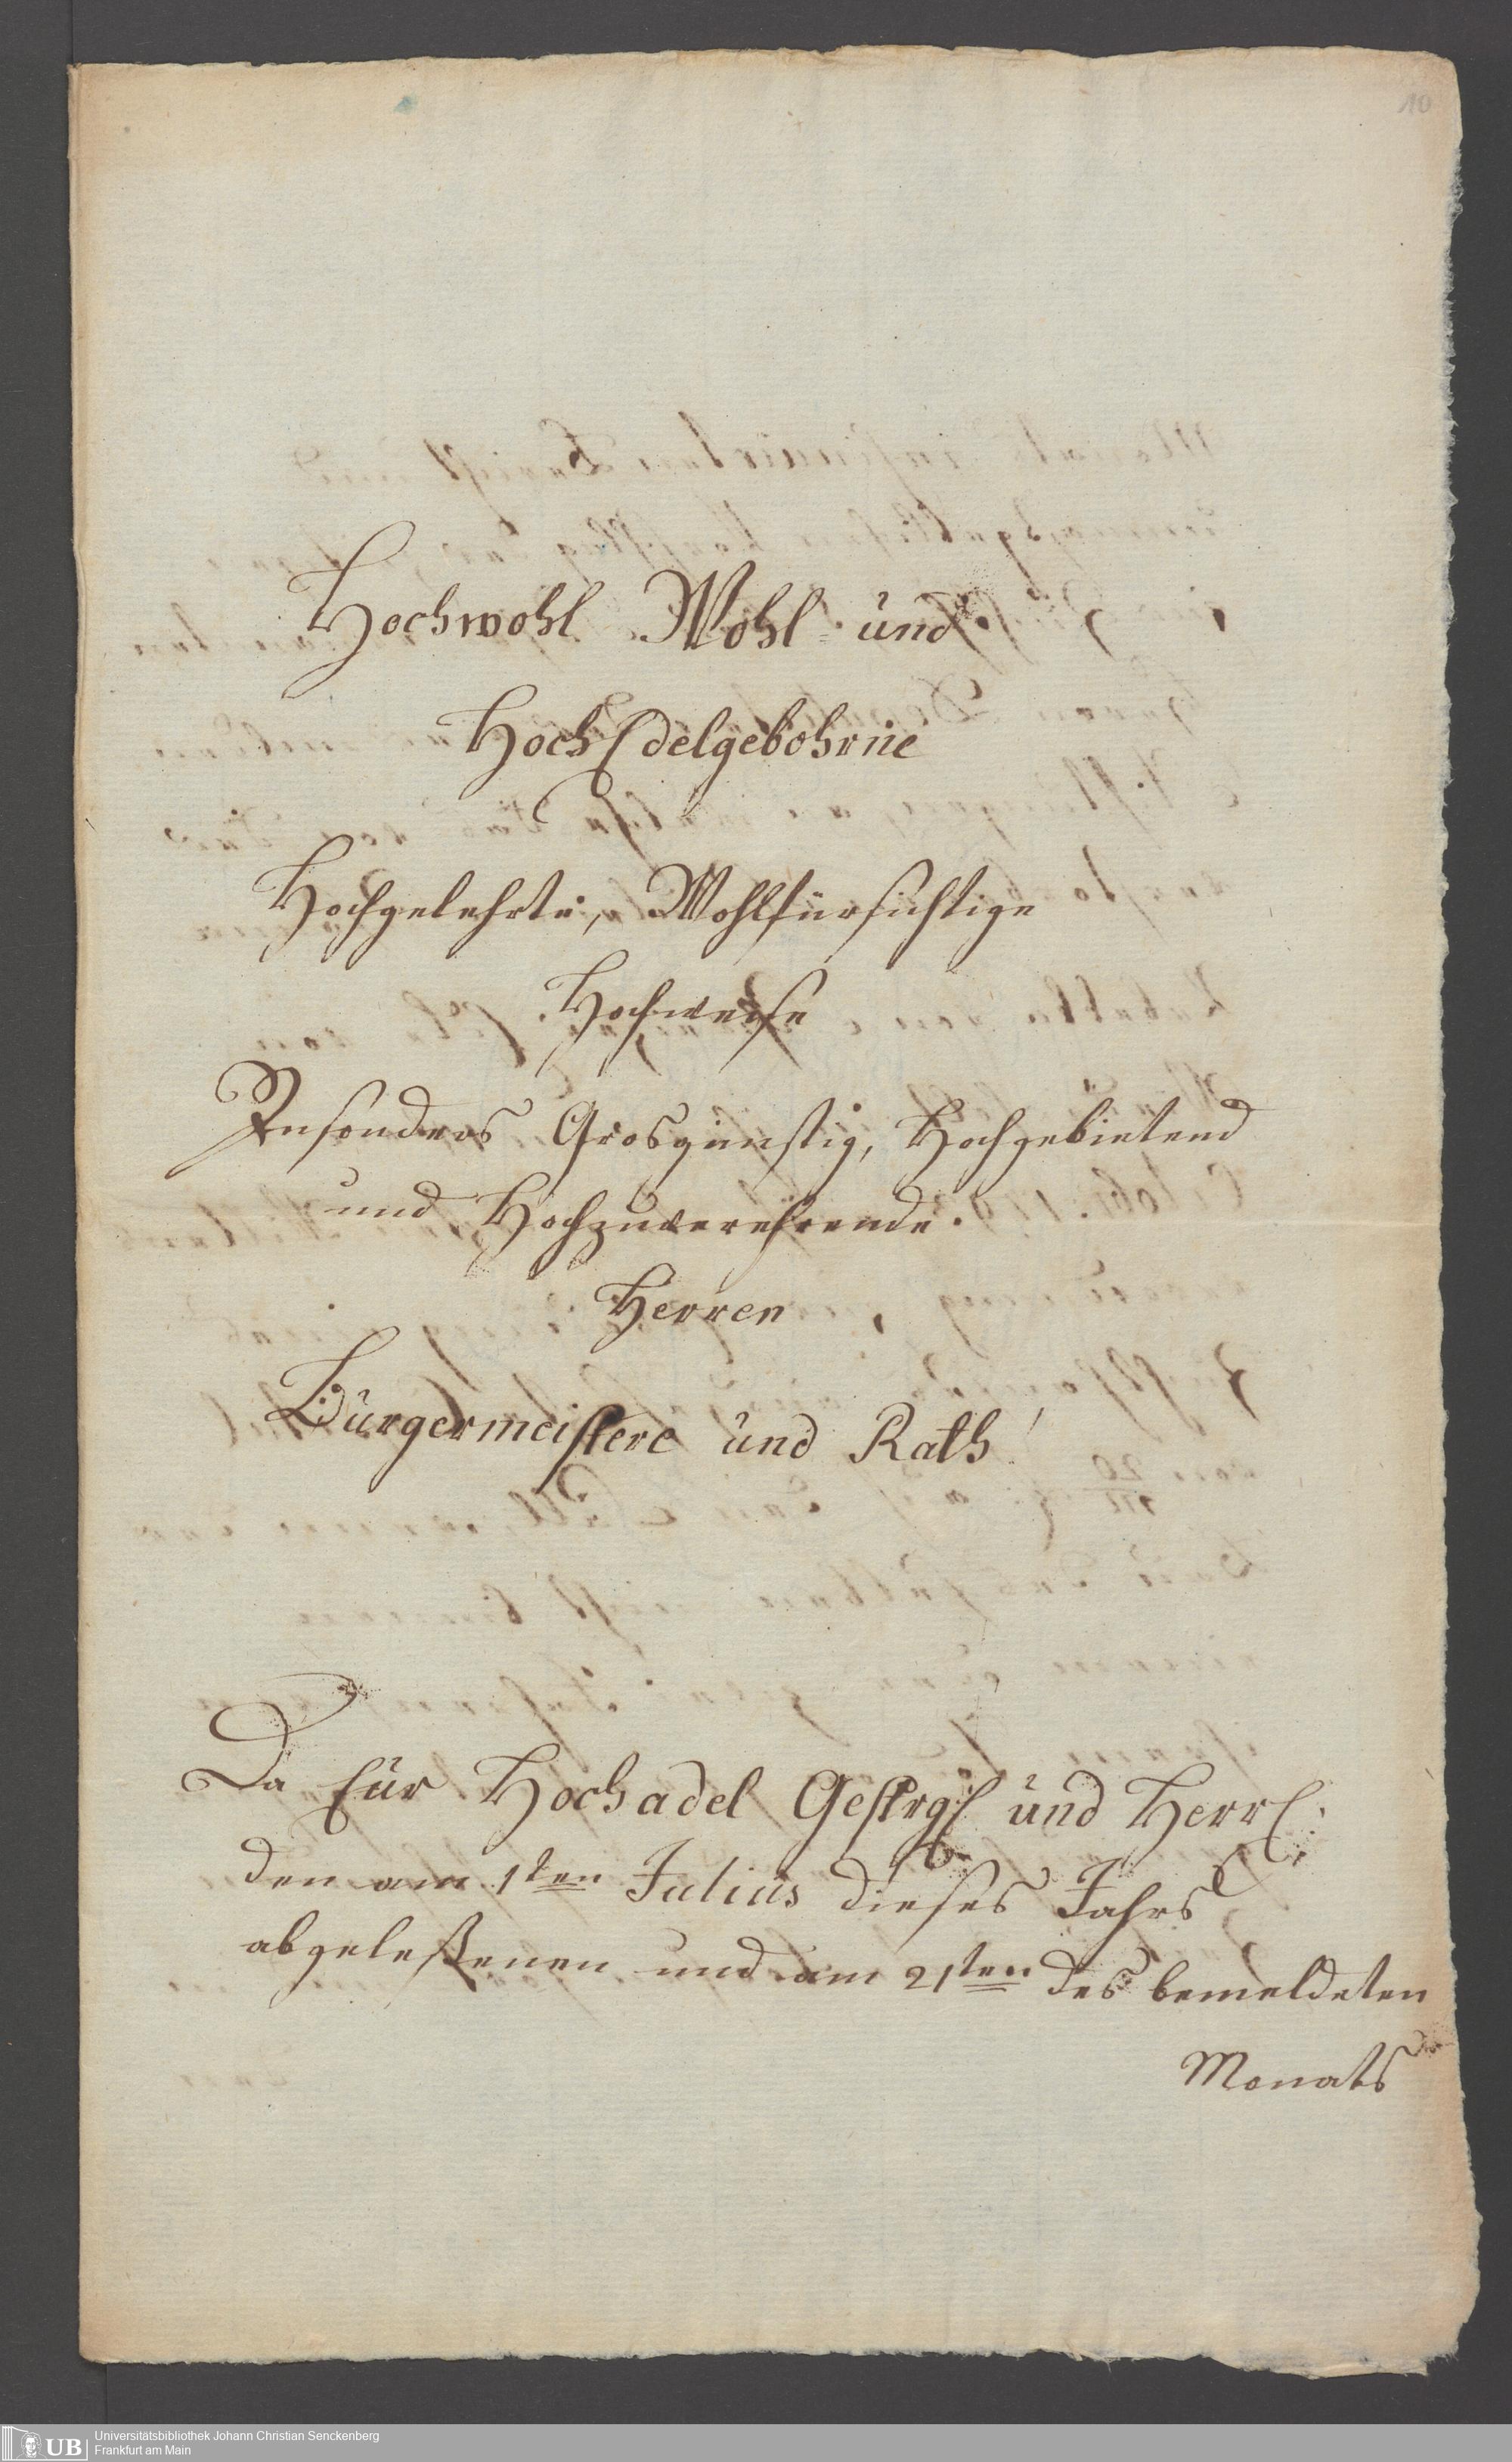 10
Hochwohl Wohl- und
HochEdelgebohrne
Hochgelehrte, Wohlfürsichtige
Hochweise
Insonders Grosgünstig, Hochgebietend
und Hochzuverehrende.
Herren
Bürgermeistere und Rath!
Da Eür Hochadel Gestrgl und Herrl:
den am 1ten Julius dieses Jahrs
abgeleßenen und am 21ten des bemeldeten
Monats
UB
Universitätsbibliothek Johann Christian Senckenberg
Frankfurt am Main